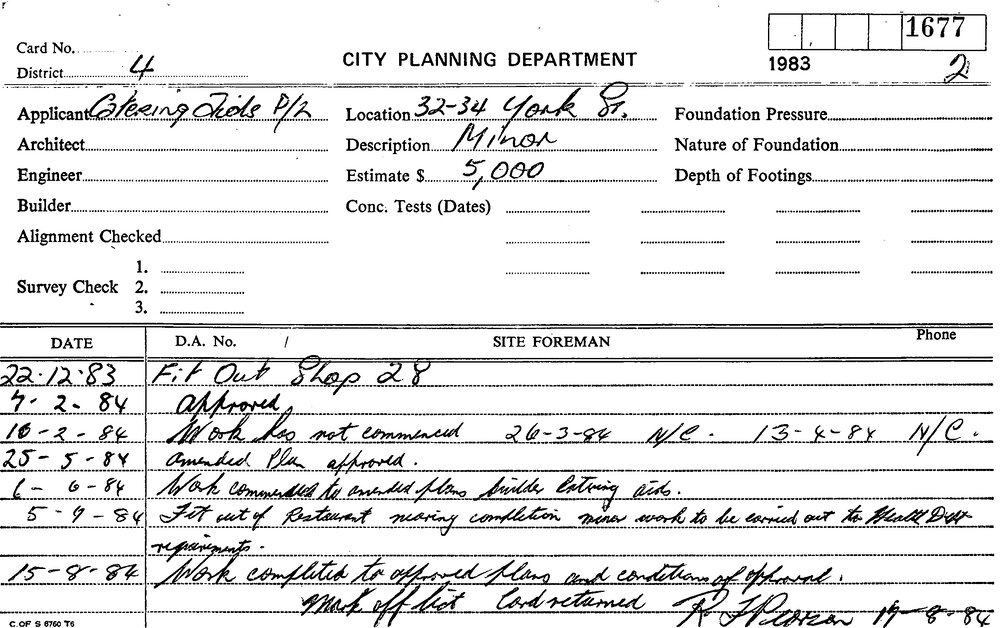 1677
Card No.
District 4
CITY PLANNING DEPARTMENT
1983
2
Applicant Catering Aids P/L Location 32-34 York St. Foundation Pressure
Architect Description Minor Nature of Foundation
Engineer Estimate $ 5,000 Depth of Footings
Builder Conc. Tests (Dates)
Alignment Checked
1.
Survey Check 2.
3.
DATE D.A. No. / SITE FOREMAN Phone
22.12.83 Fit Out Shop 28
7-2-84 approved
10-2-84 Work has not commenced 26-3-84 N/C. 13-4-84 N/C.
25-5-84 amended Plan approved.
6-6-84 Work commenced to amended plans builder Catering aids.
5-7-84 Fit out of Restaurant nearing completion minor work to be carried out to Health Dept
requirements.
15-8-84 Work completed to approved plans and conditions of approval.
Mark off list Card returned R F Pearson 17-8-84
C.OF S 6760 T6